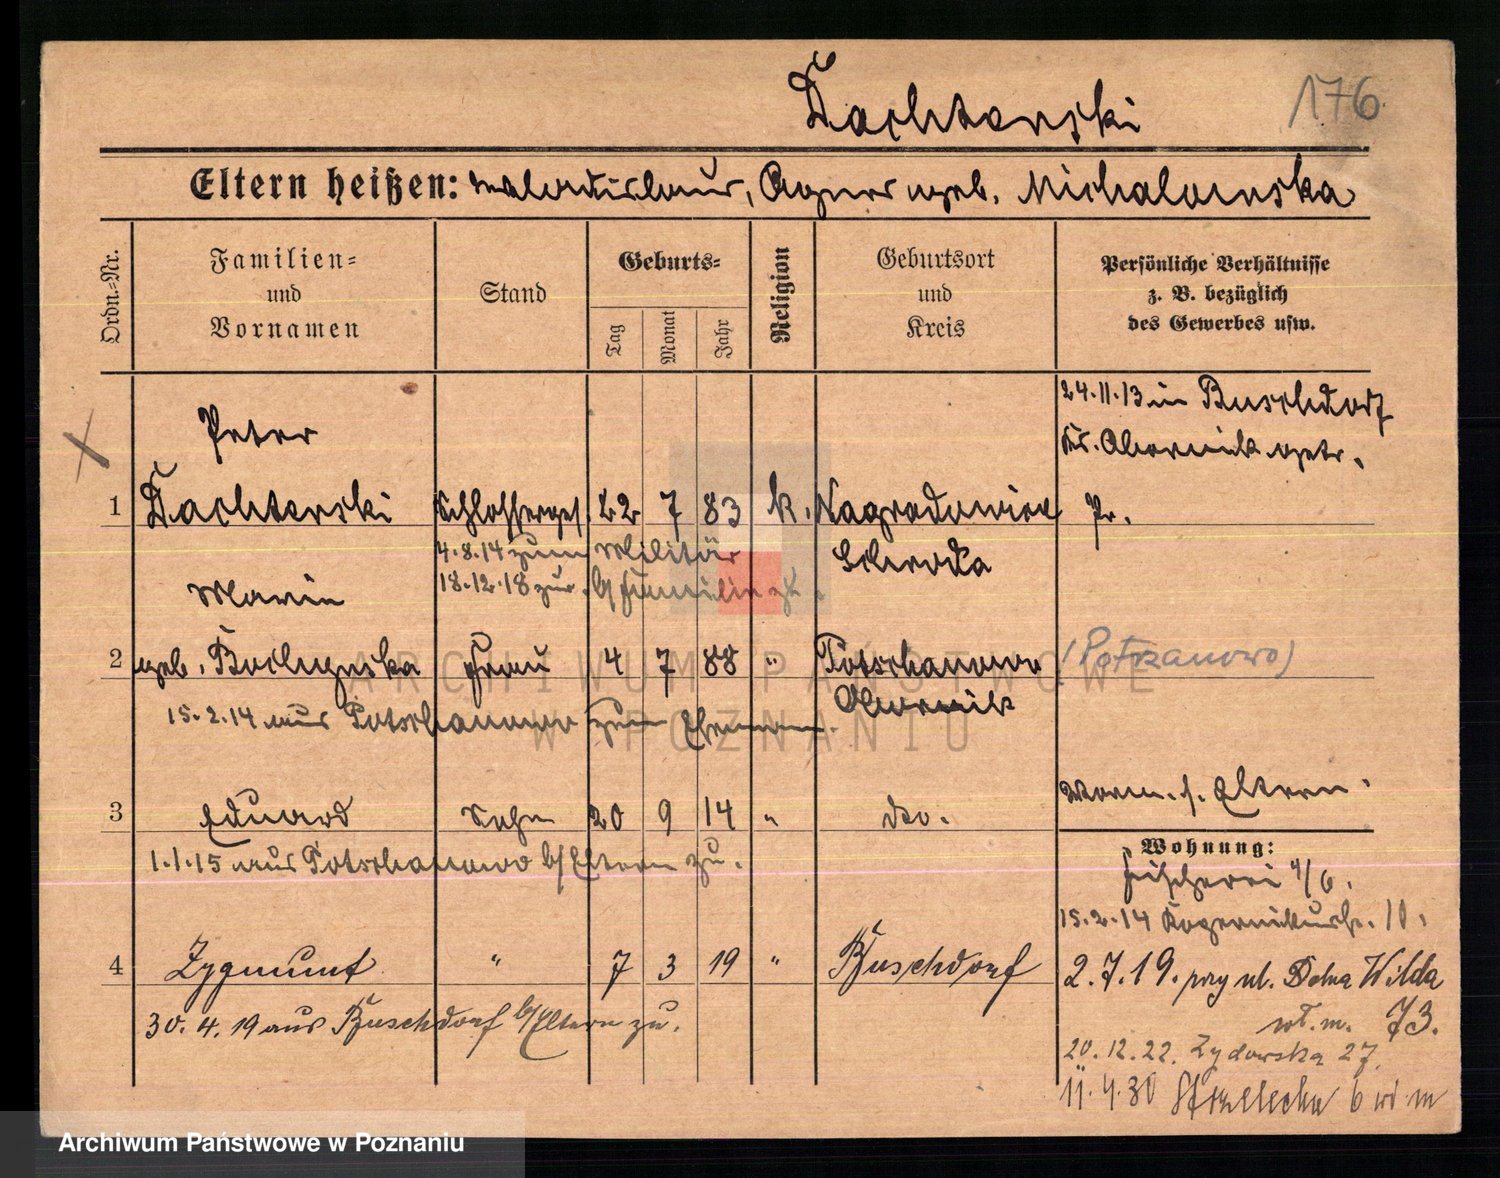 Dachterski
176
Eltern heißen: Wladislaus, Agnes geb. Michalowska
Ordn.-Nr.
Familien-
und
Vornamen
Stand
Geburts-
Tag
Monat
Jahr
Religion
Geburtsort
und
Kreis
Persönliche Verhältnisse
z. B. bezüglich
des Gewerbes usw.
24.11.13 in Buschdorf
Kr. Obornik getr.
Peter
1 Dachterski Schlosserges. 22 7 83 k. Nagradowice Pr.
4.8.14 zum Militär
Schroda
18.12.18 zur Familie
Maria
2 geb. Frau 4 7 88 " Potschanowo (Potrzanowo)
Obornik
15.2.14 aus Potschanowo zum Ehemann.
Worm. s. Eltern.
3 Eduard Sohn 20 9 14 " do.
1.1.15 aus Potschanowo b/Eltern zu.
Wohnung:
Fischerei 4/6.
15.2.14 Kopernikusstr. 10.
4 Zygmunt " 7 3 19 " Buschdorf
2.7.19. przy ul. Dolna Wilda
73.
30.4.19 aus Buschdorf b/Eltern zu.
20.12.22. Żydowska 27.
11.4.30 Strzelecka 6 wł m
ARCHIWUM PAŃSTWOWE
W POZNANIU
Archiwum Państwowe w Poznaniu